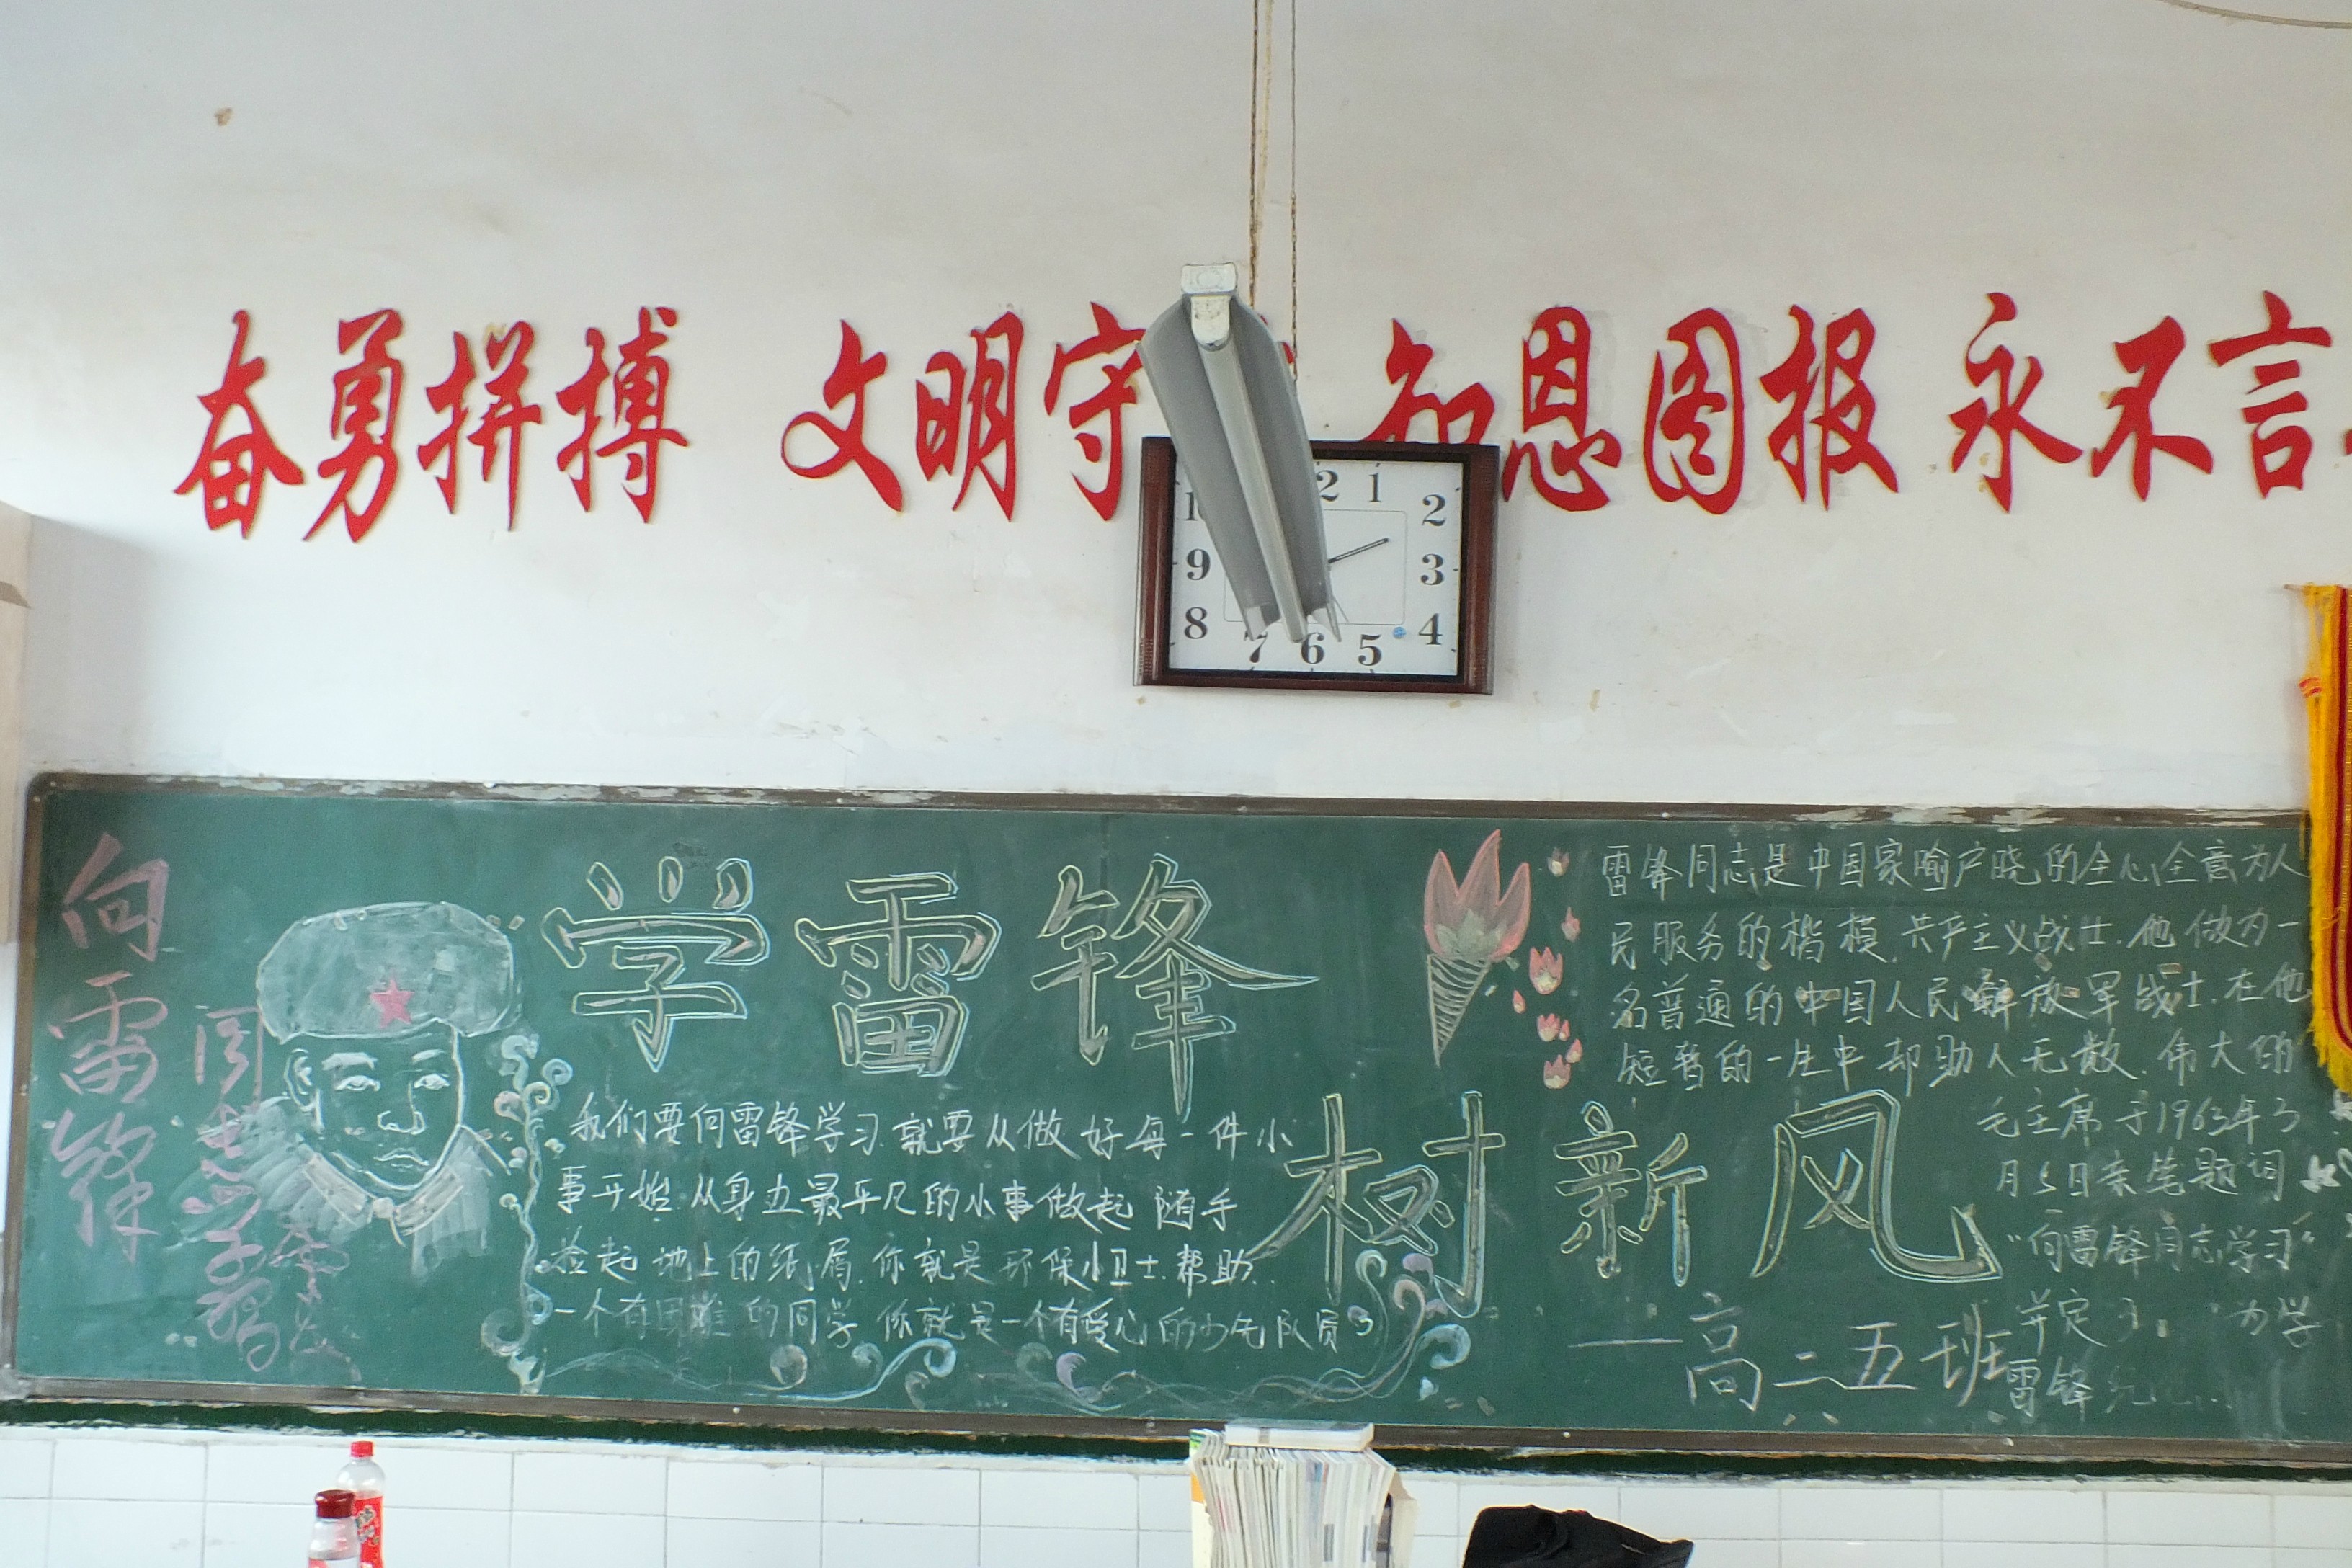 奋勇拼搏 文明守 知恩图报 永不言
2 1
2
9 3
8 4
7 6 5
向雷锋
同志学习
学雷锋
树新风
我们要向雷锋学习.就要从做好每一件小
事开始.从身边最平凡的小事做起 随手
捡起地上的纸屑.你就是环保小卫士.帮助
一个有困难的同学.你就是一个有爱心的少先队员
雷锋同志是中国家喻户晓的全心全意为人
民服务的楷模.共产主义战士.他做为一
名普通的中国人民解放军战士.在他
短暂的一生中却助人无数.伟大的
毛主席于1963年3
月5日亲笔题词
"向雷锋同志学习"
并定3 为学
雷锋
—高二五班